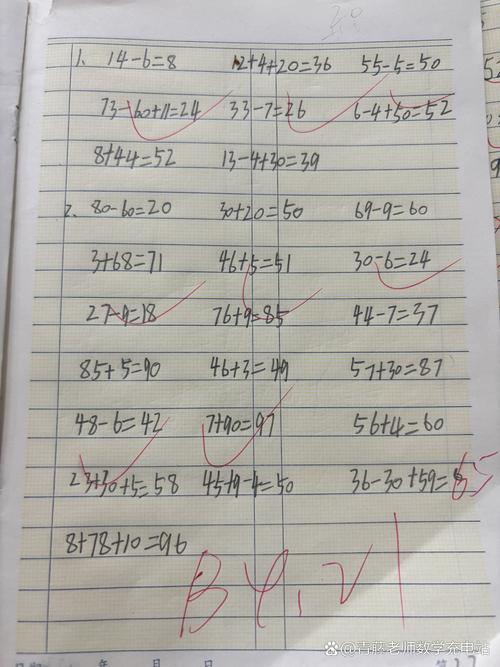 1. 14-6=8 12+4+20=36 55-5=50
73-60+11=24 33-7=26 6-4+50=52
8+44=52 13-4+30=39
2. 80-60=20 30+20=50 69-9=60
3+68=71 46+5=51 30-6=24
27-9=18 76+9=85 44-7=37
85+5=90 46+3=49 57+30=87
48-6=42 7+90=97 56+4=60
23+30+5=58 45+9-4=50 36-30+59=65
8+78+10=96
B 4.21
年 月 日 第
@青藤老师数学充电站